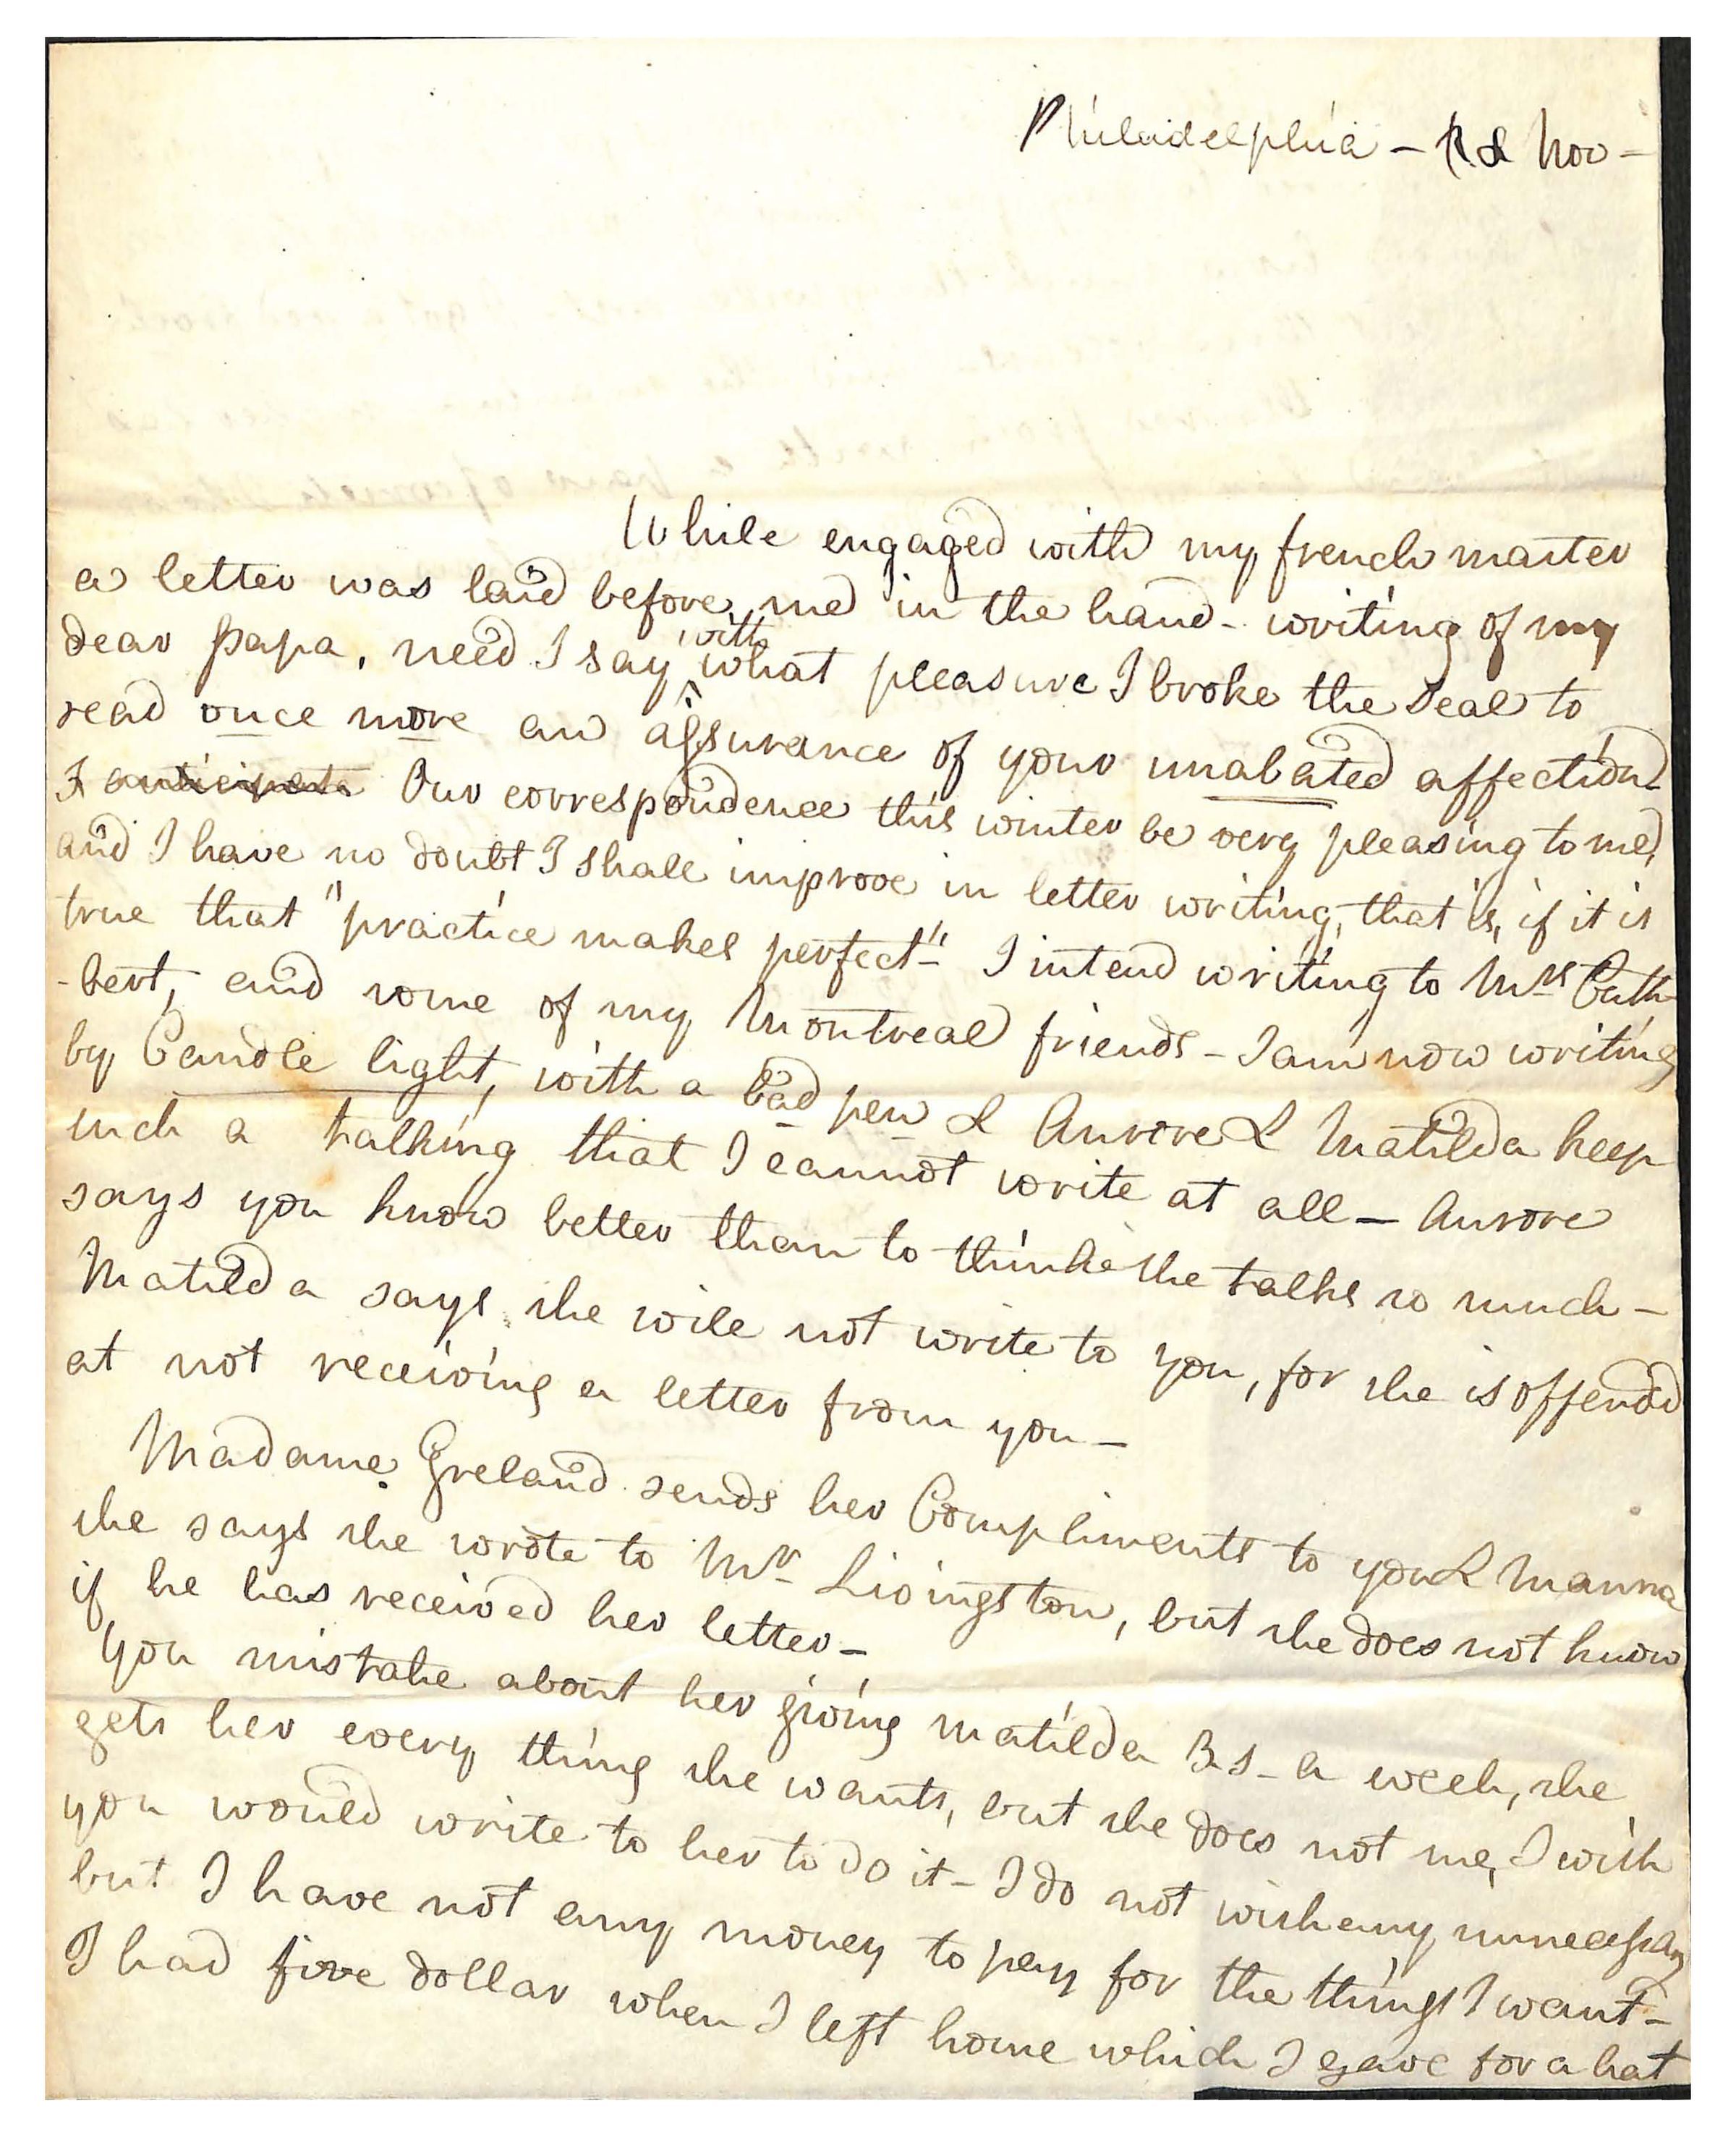 Philadelphia - Nov -
While engaged with my french master
a letter was laid before me in the hand - writing of my
dear Papa, need I say with what pleasure I broke the seal to
read once more an assurance of your unabated affection -
I anticipate Our correspondence this winter be very pleasing to me,
and I have no doubt I shall improve in letter writing, that is, if it is
true that "practice makes perfect" - I intend writing to Mrs Cuth
-bert, and some of my Montreal friends - I am now writing
by Candle light, with a bad pen & Aurore & Matilda keep
such a talking that I cannot write at all - Aurore
says you know better than to think she talks so much -
Matilda says she will not write to you, for she is offended
at not receiving a letter from you -
Madame Greland sends her Compliments to you & Mamma
she says she wrote to Mr Livingston, but she does not know
if he has received her letter -
You mistake about her giving Matilda a week, she
gets her every thing she wants, but she does not me, I wish
you would write to her to do it - I do not wish any unnecessary
but I have not any money to pay for the things I want -
I had five dollar when I left home which I gave for a hat